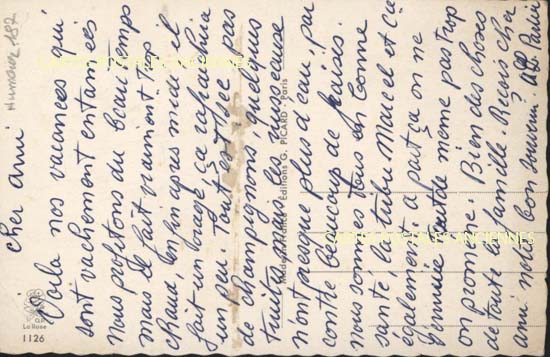 Cher ami
Voila nos vacances qui
sont vachement entamées
nous profitons du beau temps
mais il fait vraiment trop
chaud, enfin apres midi il
fait un orage ça rafraichia
un peu. Tout est sec pas
de champignons, quelques
truites, mais les ruisseaux
n'ont presque plus d'eau, par
contre beaucoup de fraises.
nous sommes tous en bonne
santé, la tribu Marcel et Cie
également. à part ça on ne
s'ennuie pas de même pas trop
on promène. Bien des choses
de toute la famille Recois cher
ami notre bon souvenir
Humour 187
Made in France - Editions G. PICARD - Paris
La Rose
1126